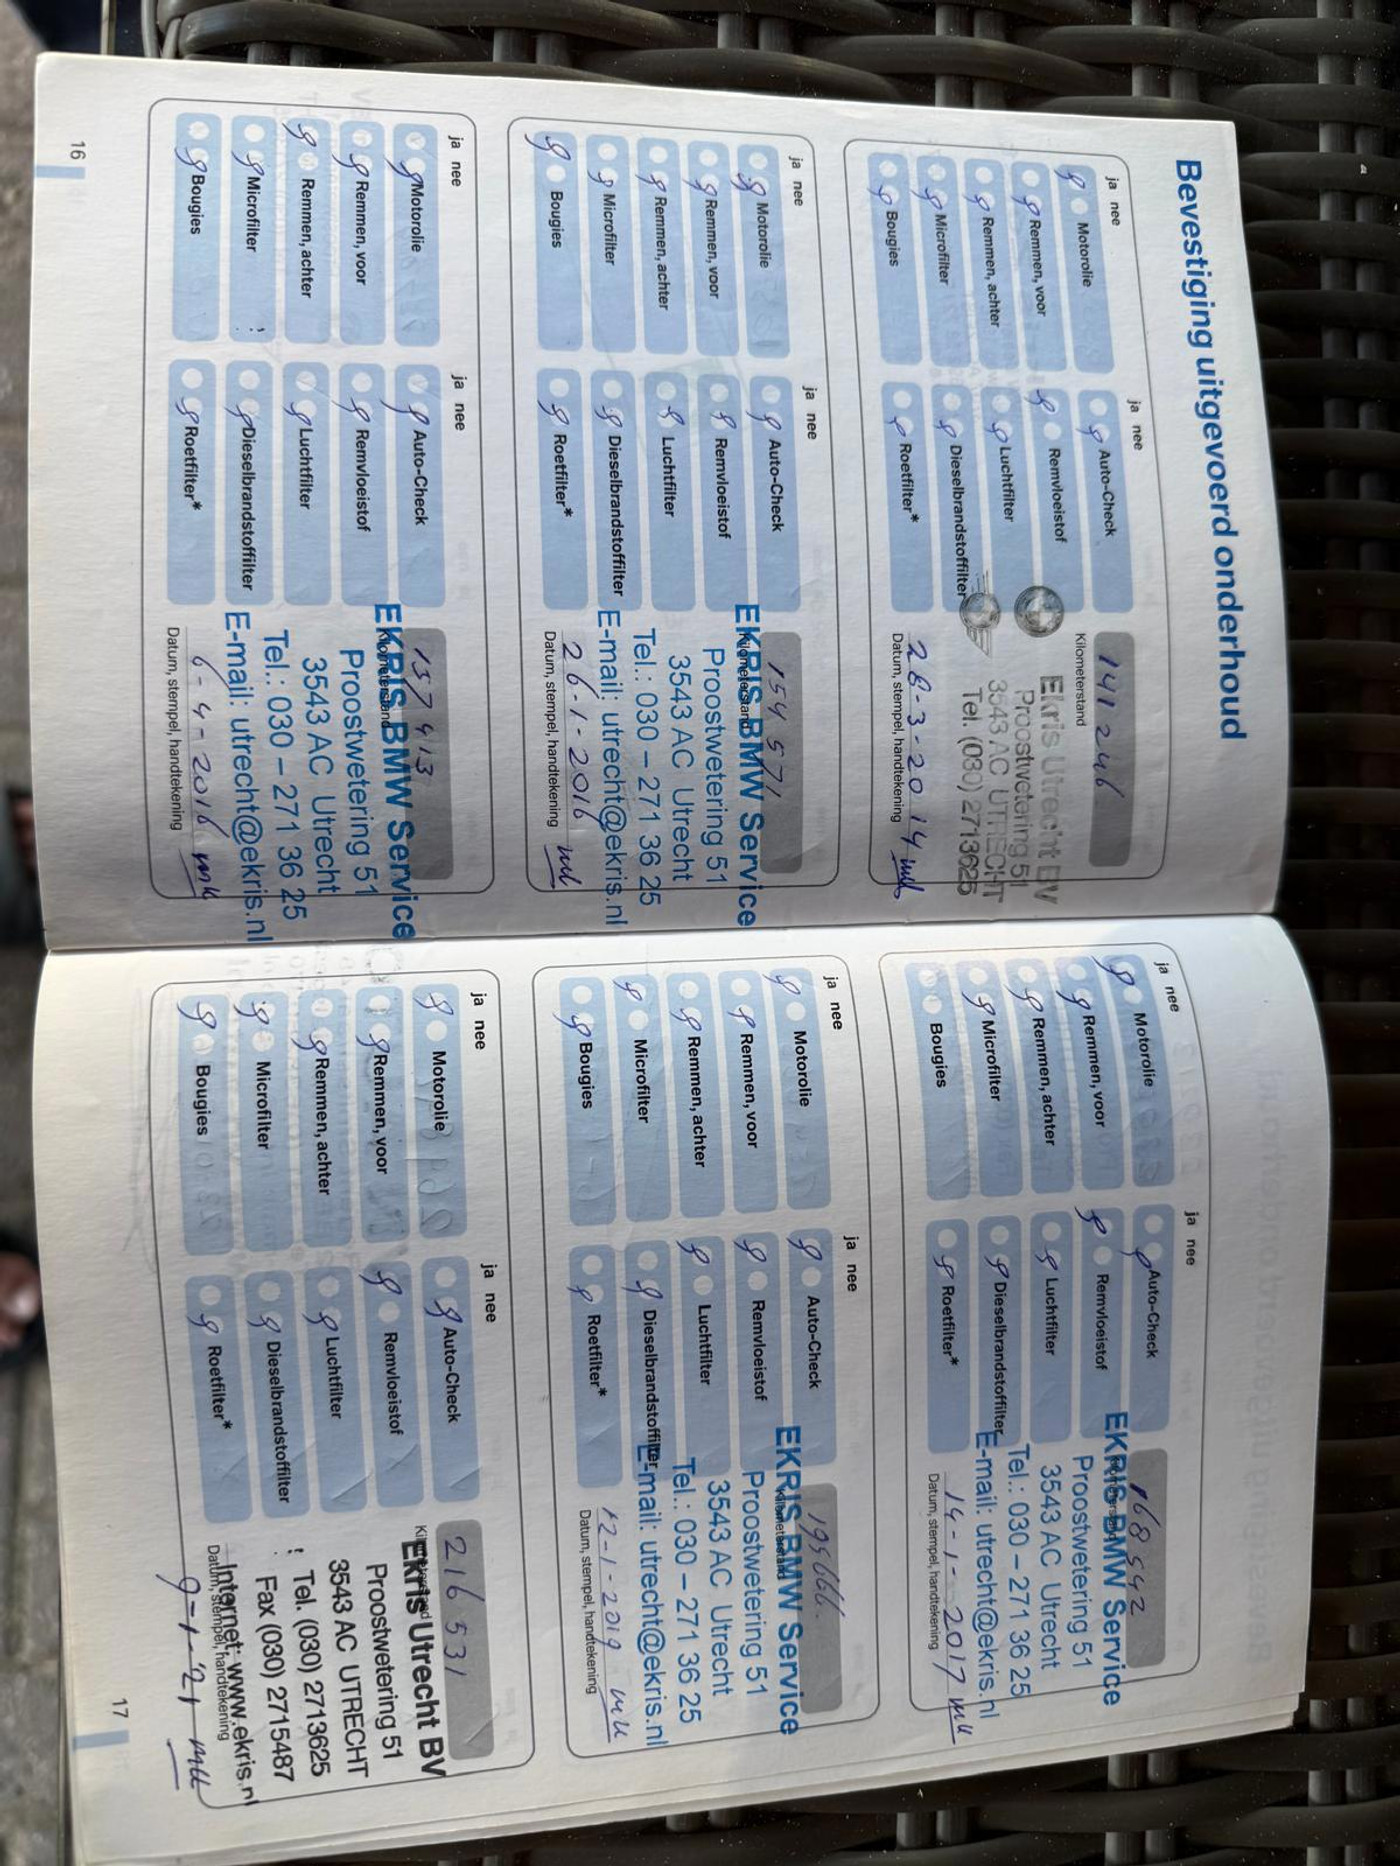 Bevestiging uitgevoerd onderhoud
ja nee
Motorolie
Remmen, voor
Remmen, achter
Microfilter
Bougies
ja nee
Auto-Check
Remvloeistof
Luchtfilter
Dieselbrandstoffilter
Roetfilter*
141 246
Kilometerstand
Ekris Utrecht BV
Proostwetering 51
3543 AC UTRECHT
Tel. (030) 2713625
28-3-2014
Datum, stempel, handtekening
ja nee
Motorolie
Remmen, voor
Remmen, achter
Microfilter
Bougies
ja nee
Auto-Check
Remvloeistof
Luchtfilter
Dieselbrandstoffilter
Roetfilter*
154 571
Kilometerstand
EKRIS BMW Service
Proostwetering 51
3543 AC Utrecht
Tel.: 030 – 271 36 25
E-mail: utrecht@ekris.nl
26-1-2016
Datum, stempel, handtekening
ja nee
Motorolie
Remmen, voor
Remmen, achter
Microfilter
Bougies
ja nee
Auto-Check
Remvloeistof
Luchtfilter
Dieselbrandstoffilter
Roetfilter*
157 413
Kilometerstand
EKRIS BMW Service
Proostwetering 51
3543 AC Utrecht
Tel.: 030 – 271 36 25
E-mail: utrecht@ekris.nl
6-4-2016
Datum, stempel, handtekening
16
ja nee
Motorolie
Remmen, voor
Remmen, achter
Microfilter
Bougies
ja nee
Auto-Check
Remvloeistof
Luchtfilter
Dieselbrandstoffilter
Roetfilter*
168 542
Kilometerstand
EKRIS BMW Service
Proostwetering 51
3543 AC Utrecht
Tel.: 030 – 271 36 25
E-mail: utrecht@ekris.nl
14-1-2017
Datum, stempel, handtekening
ja nee
Motorolie
Remmen, voor
Remmen, achter
Microfilter
Bougies
ja nee
Auto-Check
Remvloeistof
Luchtfilter
Dieselbrandstoffilter
Roetfilter*
195666.
Kilometerstand
EKRIS BMW Service
Proostwetering 51
3543 AC Utrecht
Tel.: 030 – 271 36 25
E-mail: utrecht@ekris.nl
12-1-2019
Datum, stempel, handtekening
ja nee
Motorolie
Remmen, voor
Remmen, achter
Microfilter
Bougies
ja nee
Auto-Check
Remvloeistof
Luchtfilter
Dieselbrandstoffilter
Roetfilter*
216 531
Kilometerstand
Ekris Utrecht BV
Proostwetering 51
3543 AC UTRECHT
Tel. (030) 2713625
Fax (030) 2715487
Internet: www.ekris.nl
Datum, stempel, handtekening
9-1-'21
17